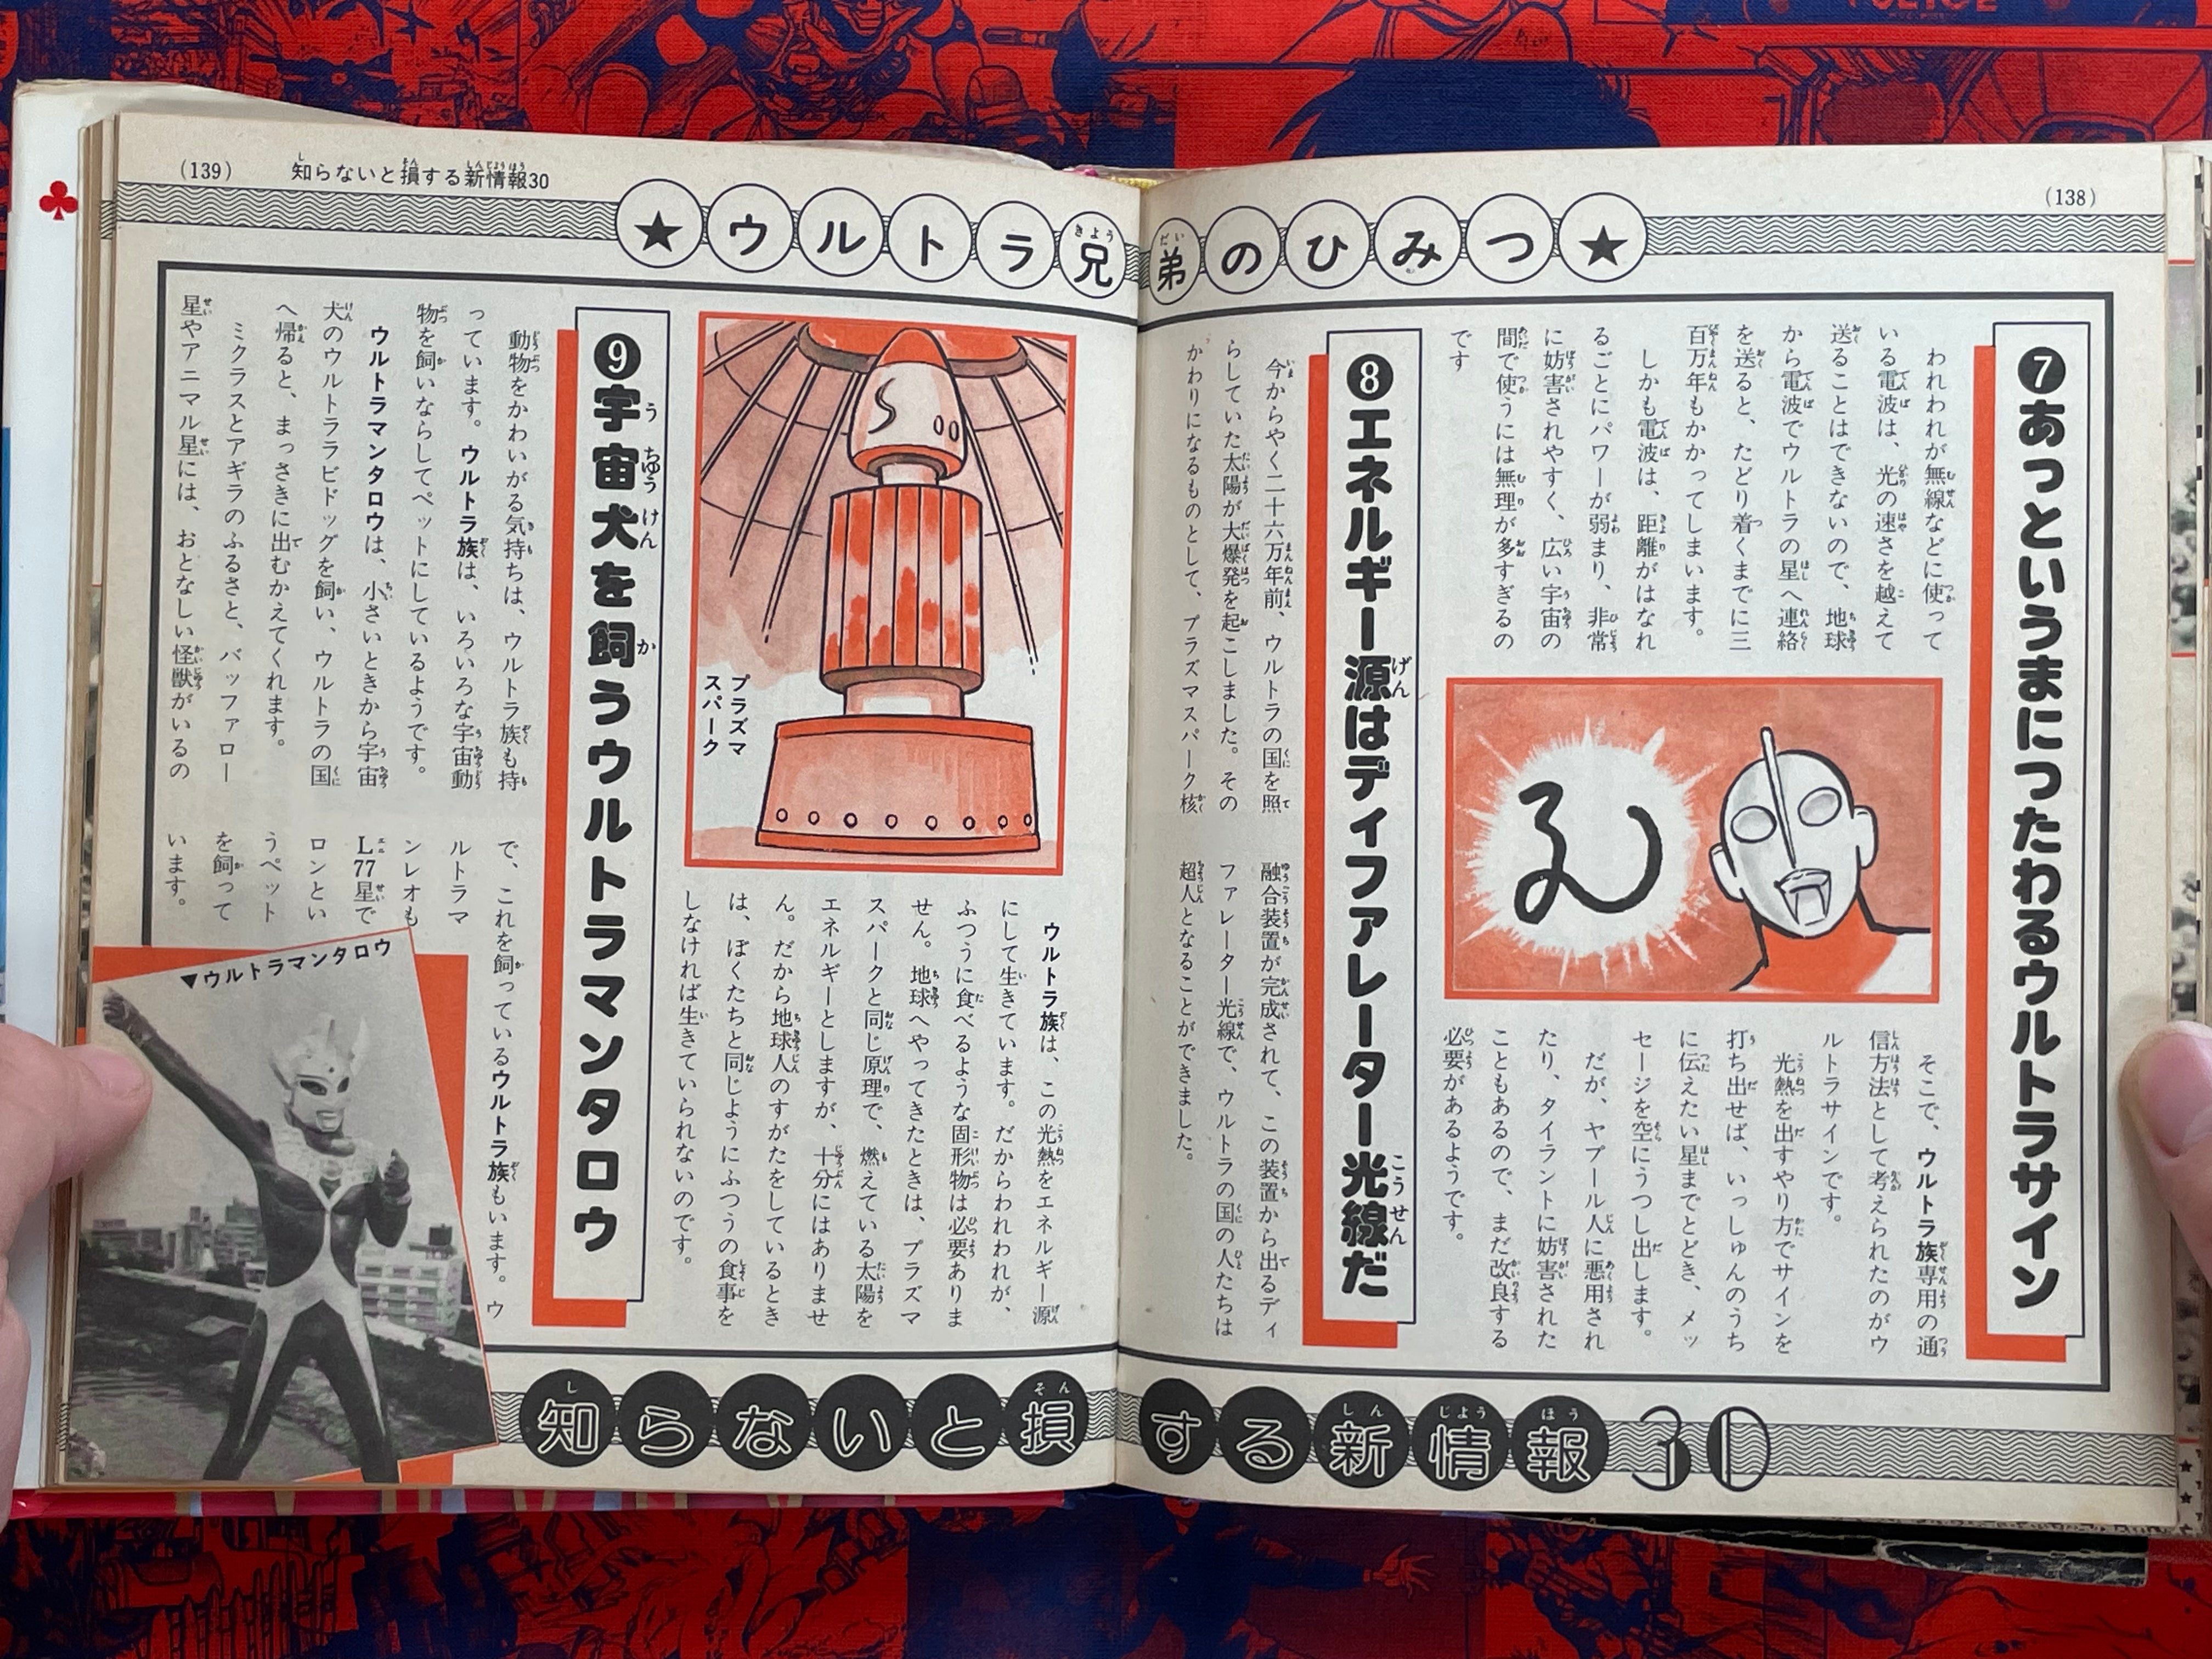 (138)
★ウルトラ兄弟のひみつ★
❼あっというまにつたわるウルトラサイン
われわれが無線などに使って
いる電波は、光の速さを越えて
送ることはできないので、地球
から電波でウルトラの星へ連絡
を送ると、たどり着くまでに三
百万年もかかってしまいます。
しかも電波は、距離がはなれ
るごとにパワーが弱まり、非常
に妨害されやすく、広い宇宙の
間で使うには無理が多すぎるの
です
そこで、ウルトラ族専用の通
信方法として考えられたのがウ
ルトラサインです。
光熱を出すやり方でサインを
打ち出せば、いっしゅんのうち
に伝えたい星までとどき、メッ
セージを空にうつし出します。
だが、ヤプール人に悪用され
たり、タイラントに妨害された
こともあるので、まだ改良する
必要があるようです。
❽エネルギー源はディファレーター光線だ
今からやく二十六万年前、ウルトラの国を照
らしていた太陽が大爆発を起こしました。その
かわりになるものとして、プラズマスパーク核
融合装置が完成されて、この装置から出るディ
ファレーター光線で、ウルトラの国の人たちは
超人となることができました。
プラズマ
スパーク
ウルトラ族は、この光熱をエネルギー源
にして生きています。だからわれわれが、
ふつうに食べるような固形物は必要ありま
せん。地球へやってきたときは、プラズマ
スパークと同じ原理で、燃えている太陽を
エネルギーとしますが、十分にはありませ
ん。だから地球人のすがたをしているとき
は、ぼくたちと同じようにふつうの食事を
しなければ生きていられないのです。
❾宇宙犬を飼うウルトラマンタロウ
動物をかわいがる気持ちは、ウルトラ族も持
っています。ウルトラ族は、いろいろな宇宙動
物を飼いならしてペットにしているようです。
ウルトラマンタロウは、小さいときから宇宙
犬のウルトララビドッグを飼い、ウルトラの国
へ帰ると、まっさきに出むかえてくれます。
ミクラスとアギラのふるさと、バッファロー
星やアニマル星には、おとなしい怪獣がいるの
で、これを飼っているウルトラ族もいます。ウ
ルトラマ
ンレオも
L77星で
ロンとい
うペット
を飼って
います。
▼ウルトラマンタロウ
(139)
知らないと損する新情報30
知らないと損する新情報30